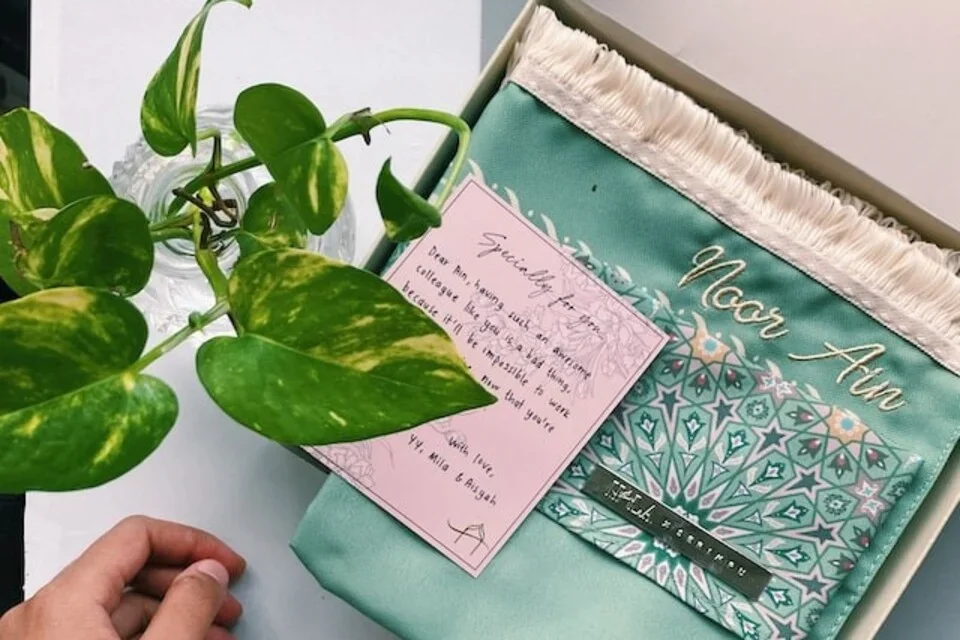 Specially for you
Dear Ain, having such an awesome
colleague like you is a bad thing,
because it'll be impossible to work
now that you're
With love,
YY, Mila & Aisyah
Noor Ain